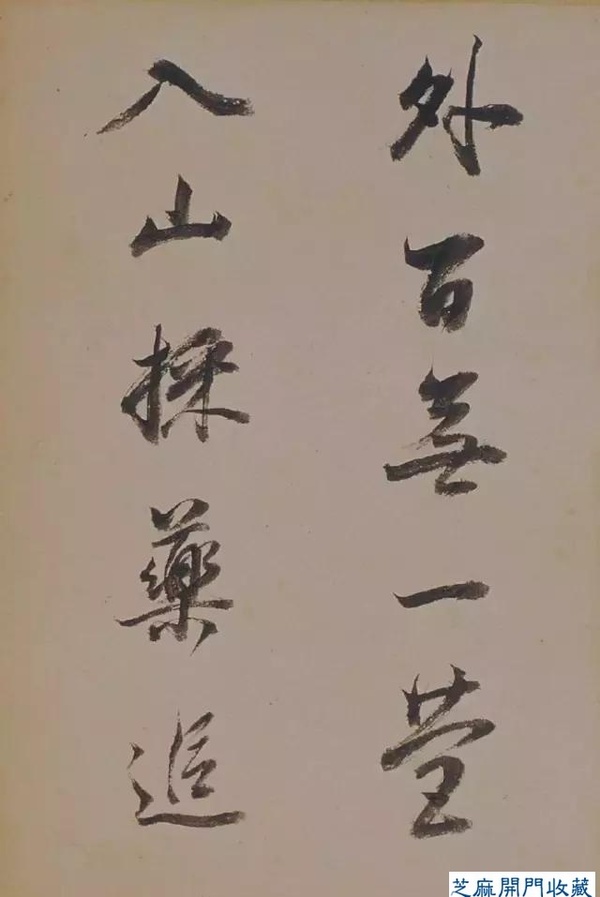 外百無一營
入山採藥追
芝麻開門收藏